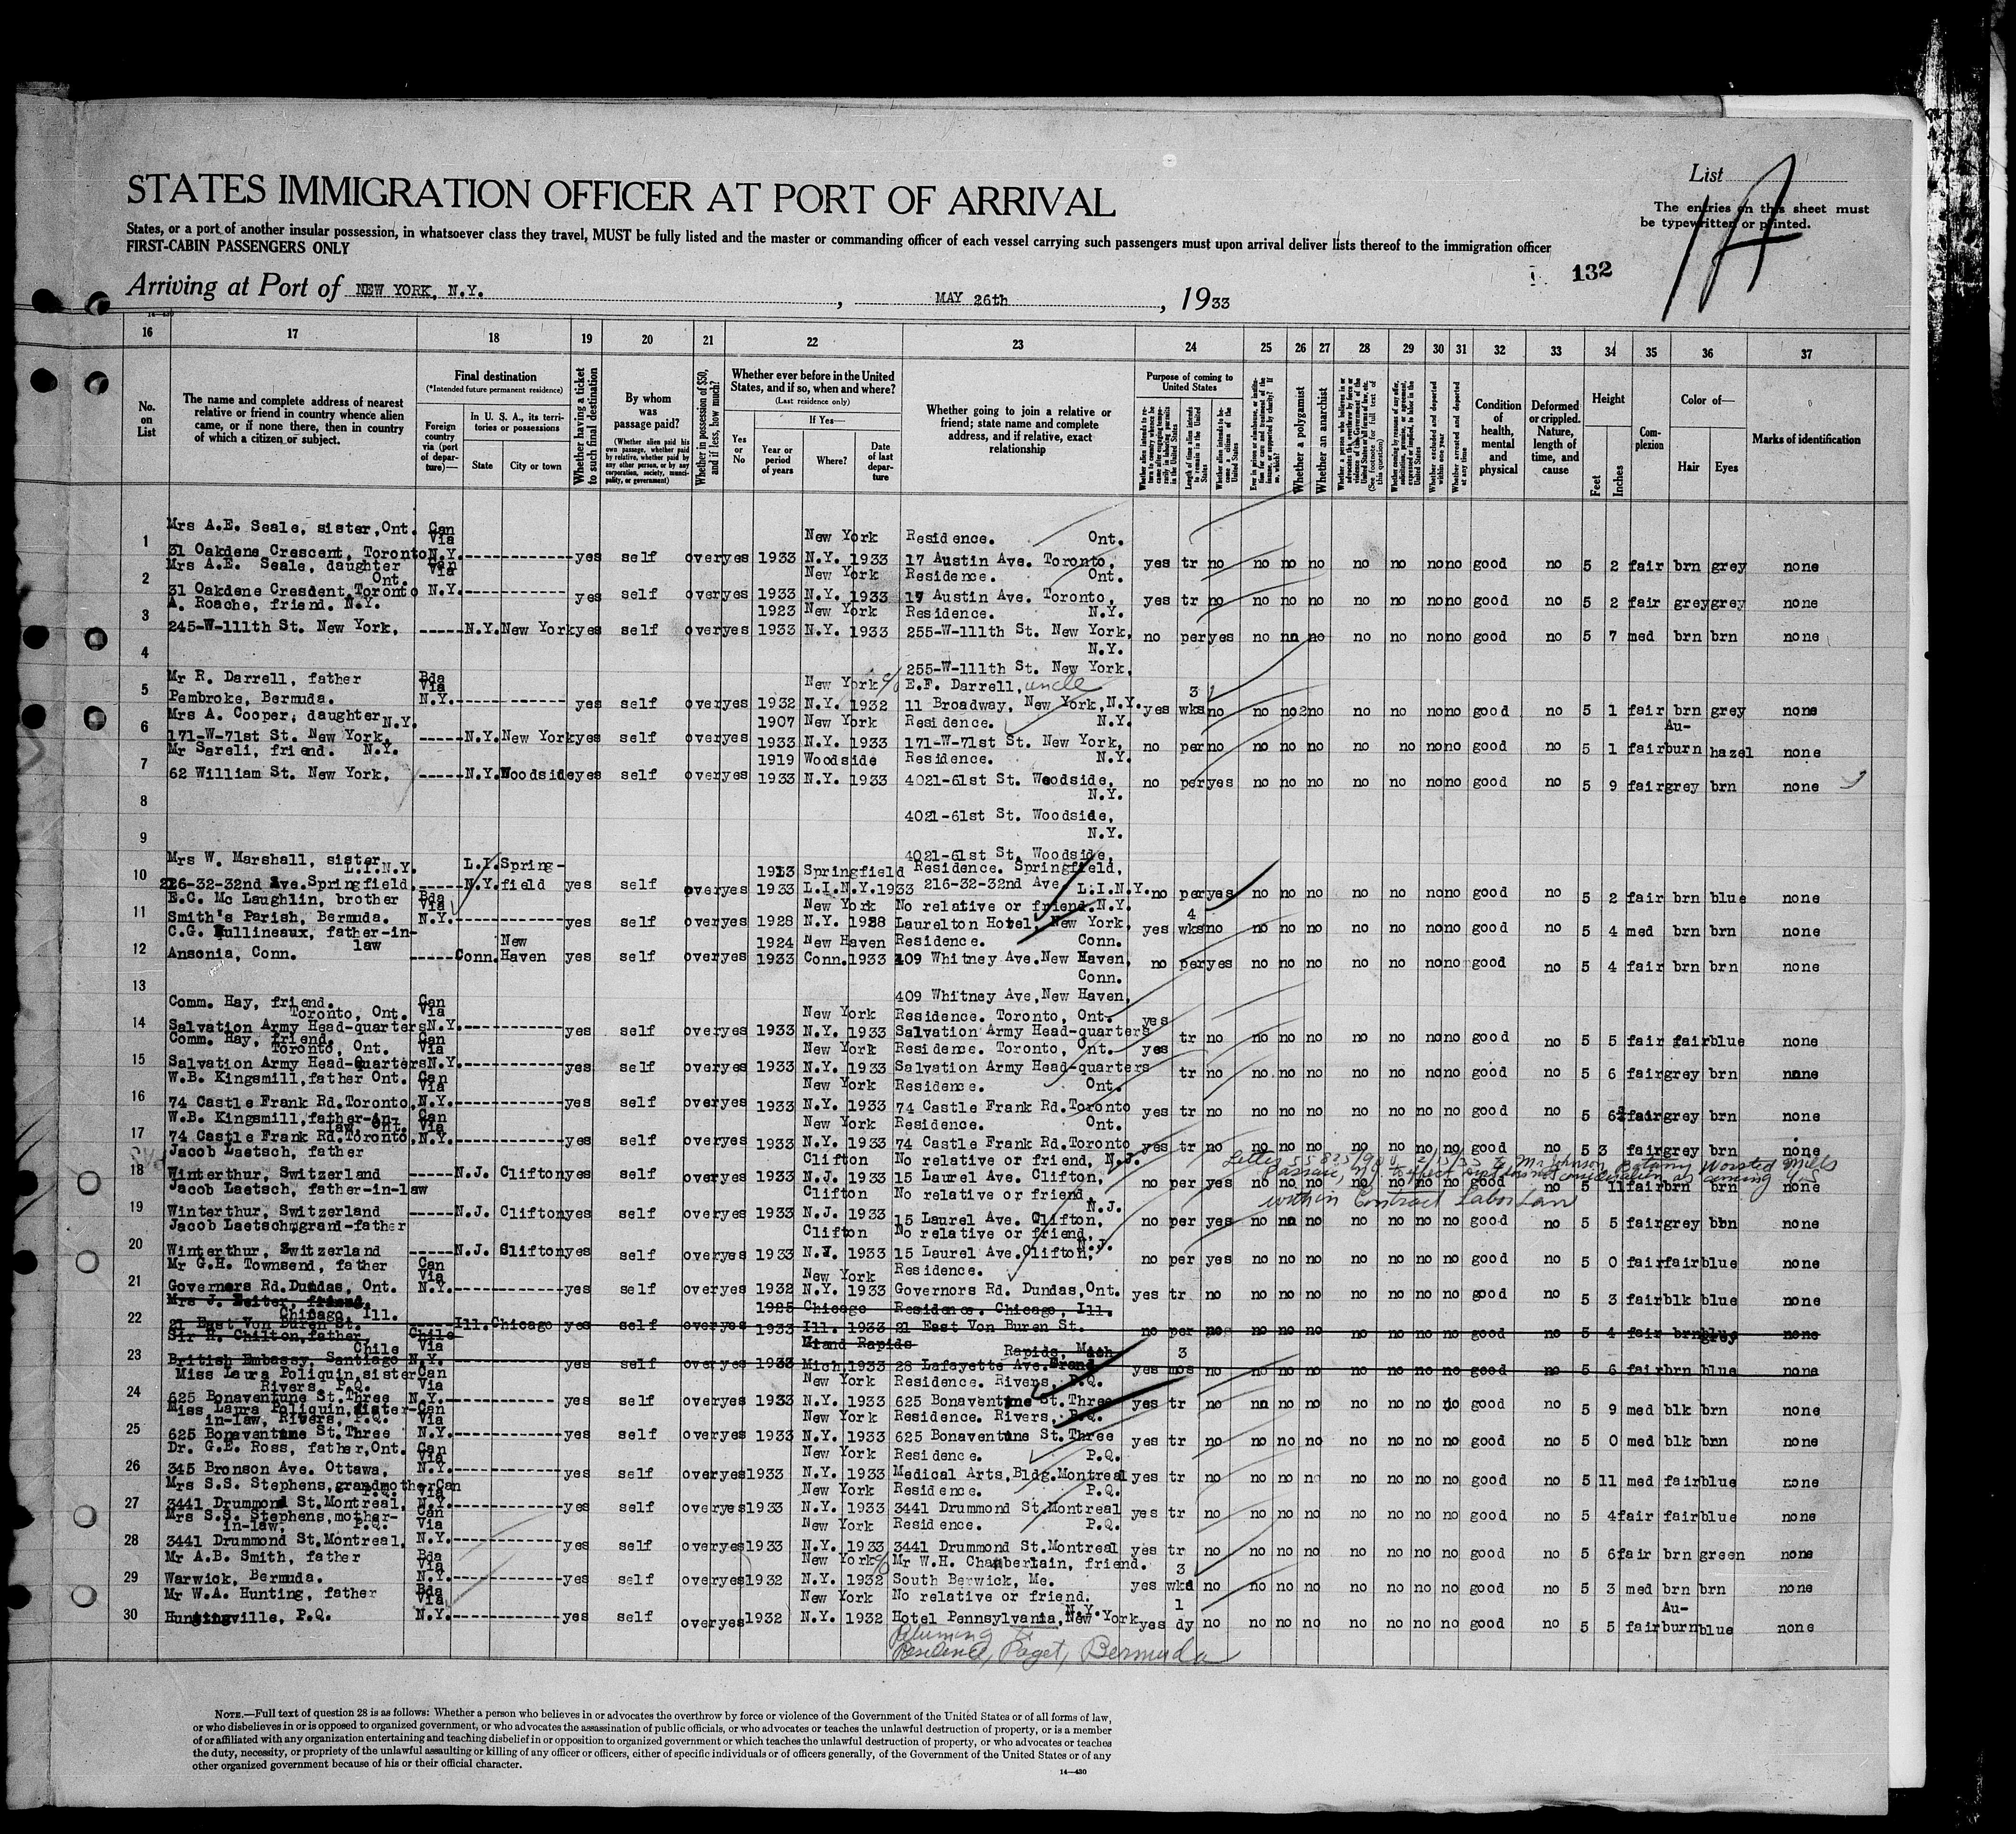 STATES IMMIGRATION OFFICER AT PORT OF ARRIVAL
List
1A
The entries on this sheet must
be typewritten or printed.
States, or a port of another insular possession, in whatsoever class they travel, MUST be fully listed and the master or commanding officer of each vessel carrying such passengers must upon arrival deliver lists thereof to the immigration officer
FIRST-CABIN PASSENGERS ONLY
132
Arriving at Port of NEW YORK, N.Y. , MAY 26th , 1933
14-430
16 17 18 19 20 21 22 23 24 25 26 27 28 29 30 31 32 33 34 35 36 37
No. on List
The name and complete address of nearest relative or friend in country whence alien came, or if none there, then in country of which a citizen or subject.
Final destination
(*Intended future permanent residence)
Foreign country via (port of departure)—
In U. S. A., its territories or possessions
State City or town
Whether having a ticket to such final destination
By whom was passage paid?
(Whether alien paid his own passage, whether paid by relative, whether paid by any other person, or by any corporation, society, municipality, or government)
Whether in possession of $50, and if less, how much?
Whether ever before in the United States, and if so, when and where?
(Last residence only)
Yes or No
If Yes—
Year or period of years
Where?
Date of last departure
Whether going to join a relative or friend; state name and complete address, and if relative, exact relationship
Purpose of coming to United States
Whether alien intends to return to country whence he came after engaging temporarily in laboring pursuits in the United States
Length of time alien intends to remain in the United States
Whether alien intends to become a citizen of the United States
Ever in prison or almshouse, or institution for care and treatment of the insane, or supported by charity? If so, which?
Whether a polygamist
Whether an anarchist
Whether a person who believes in or advocates the overthrow by force or violence of the Government of the United States or all forms of law, etc. (See footnote for full text of this question)
Whether coming by reason of any offer, solicitation, promise, or agreement, expressed or implied, to labor in the United States
Whether excluded and deported within one year
Whether arrested and deported at any time
Condition of health, mental and physical
Deformed or crippled. Nature, length of time, and cause
Height
Feet Inches
Complexion
Color of—
Hair Eyes
Marks of identification
1 Mrs A.E. Seale, sister, Ont. Can Via New York Residence. Ont.
31 Oakdene Crescent, Toronto N.Y. ---------- yes self over yes 1933 N.Y. 1933 17 Austin Ave. Toronto, yes tr no no no no no no no no good no 5 2 fair brn grey none
2 Mrs A.E. Seale, daughter Ont. Can Via New York Residence. Ont.
31 Oakdene Cresdent, Toronto N.Y. ---------- yes self over yes 1933 N.Y. 1933 17 Austin Ave. Toronto, yes tr no no no no no no no no good no 5 2 fair grey grey none
3 A. Roache, friend. N.Y. 1923 New York Residence. N.Y.
245-W-111th St. New York, ----- N.Y. New York yes self over yes 1933 N.Y. 1933 255-W-111th St. New York, no per yes no nn no no no no no good no 5 7 med brn brn none
4 N.Y.
255-W-111th St. New York,
5 Mr R. Darrell, father Bda Via New York c/o E.F. Darrell, uncle 3
Pembroke, Bermuda. N.Y. ---------- yes self over yes 1932 N.Y. 1932 11 Broadway, New York, N.Y. yes wks no no no2no no no no no good no 5 1 fair brn grey none
6 Mrs A. Cooper, daughter N.Y. 1907 New York Residence. N.Y. Au-
171-W-71st St. New York, ----- N.Y. New York yes self over yes 1933 N.Y. 1933 171-W-71st St. New York, no per no no no no no no no no good no 5 1 fair burn hazel none
7 Mr Sereli, friend. N.Y. 1919 Woodside Residence. N.Y.
62 William St. New York, ----- N.Y. Woodside yes self over yes 1933 N.Y. 1933 4021-61st St. Woodside, no per yes no no no no no no no good no 5 9 fair grey brn none
8 N.Y.
4021-61st St. Woodside,
9 N.Y.
4021-61st St. Woodside,
10 Mrs W. Marshall, sister L.I.N.Y. L.I. Spring- 1913 Springfield Residence. Springfield,
226-32-32nd Ave. Springfield, ----- N.Y. field yes self over yes 1933 L.I.N.Y. 1933 216-32-32nd Ave. L.I.N.Y. no per yes no no no no no no no good no 5 2 fair brn blue none
11 E.C. Mc Laughlin, brother Bda Via New York No relative or friend. N.Y. 4
Smith's Parish, Bermuda. N.Y. ---------- yes self over yes 1928 N.Y. 1928 Laurelton Hotel, New York, yes wks no no no no no no no no good no 5 4 med brn brn none
12 C.G. Mullineaux, father-in-law New 1924 New Haven Residence. Conn.
Ansonia, Conn. ----- Conn. Haven yes self over yes 1933 Conn. 1933 409 Whitney Ave. New Haven, no per yes no no no no no no no good no 5 4 fair brn brn none
13 Conn.
409 Whitney Ave, New Haven,
14 Comm. Hay, friend. Toronto, Ont. Can Via New York Residence. Toronto, Ont. yes
Salvation Army Head-quarters N.Y. ---------- yes self over yes 1933 N.Y. 1933 Salvation Army Head-quarters tr no no no no no no no no good no 5 5 fair fair blue none
15 Comm. Hay, friend. Toronto, Ont. Can Via New York Residence. Toronto, Ont. yes
Salvation Army Head-Quarters N.Y. ---------- yes self over yes 1933 N.Y. 1933 Salvation Army Head-quarters tr no no no no no no no no good no 5 6 fair grey brn nnne
16 W.B. Kingsmill, father Ont. Can Via New York Residence. Ont.
74 Castle Frank Rd. Toronto, N.Y. ---------- yes self over yes 1933 N.Y. 1933 74 Castle Frank Rd. Toronto yes tr no no no no no no no no good no 5 6½ fair grey brn none
17 W.B. Kingsmill, father-in-law, Ont. Can Via New York Residence. Ont.
74 Castle Frank Rd. Toronto, N.Y. ---------- yes self over yes 1933 N.Y. 1933 74 Castle Frank Rd. Toronto yes tr no no no no no no no no good no 5 3 fair grey brn none
18 Jacob Laetsch, father Clifton No relative or friend, N.J.
Winterthur, Switzerland ----- N.J. Clifton yes self over yes 1933 N.J. 1933 15 Laurel Ave. Clifton, no per yes no no no no no no no good no 5 11 fair brn brn none
Letter 55823/90 Mr Johnson Botany Worsted Mills
Passaic, N.J. to effect
within Contract Labor Law
19 Jacob Laetsch, father-in-law Clifton No relative or friend, N.J.
Winterthur, Switzerland ----- N.J. Clifton yes self over yes 1933 N.J. 1933 15 Laurel Ave. Clifton, no per yes no nn no no no no no good no 5 5 fair grey bbn none
20 Jacob Laetsch, grand-father Clifton No relative or friend, N.J.
Winterthur, Switzerland ----- N.J. Clifton yes self over yes 1933 N.Y. 1933 15 Laurel Ave. Clifton, no per yes no no no no no no no good no 5 0 fair fair blue none
21 Mr G.H. Townsend, father Can Via New York Residence.
Governors Rd. Dundas, Ont. N.Y. ---------- yes self over yes 1932 N.Y. 1932 Governors Rd. Dundas, Ont. yes tr no no no no no no no no good no 5 3 fair blk blue none
22 Mrs J. Beiter, friend, Chicago, Ill. 1925 Chicago Residence. Chicago, Ill.
21 East Von Buren St. ----- Ill. Chicago yes self over yes 1933 Ill. 1933 21 East Von Buren St. no per no no no no no no no no good no 5 4 fair brn grey none
23 Sir H. Chilton, father, Chile Chile Via Grand Rapids Rapids, Mich 3
British Embassy, Santiago N.Y. ---------- yes self over yes 1933 Mich. 1933 28 Lafayette Ave. Grand yes mos no no no no no no no no good no 5 6 fair brn blue none
24 Miss Laura Poliquin, sister Rivers, P.Q. Can Via New York Residence. Rivers, P.Q.
625 Bonaventune St. Three N.Y. ---------- yes self over yes 1933 N.Y. 1933 625 Bonaventune St. Three yes tr no nn no no no no no no good no 5 9 med blk brn none
25 Miss Laura Poliquin, sister-in-law, Rivers, P.Q. Can Via New York Residence. Rivers, P.Q.
625 Bonaventune St. Three N.Y. ---------- yes self over yes 1933 N.Y. 1933 625 Bonaventune St. Three yes tr no no no no no no no no good no 5 0 med blk brn none
26 Dr. G.E. Ross, father, Ont. Can Via New York Residence. P.Q.
345 Bronson Ave. Ottawa, N.Y. ---------- yes self over yes 1933 N.Y. 1933 Medical Arts, Bldg. Montreal yes tr no no no n no no no no good no 5 11 med fair blue none
27 Mrs S.S. Stephens, grandmother P.Q. Can Via New York Residence. P.Q.
3441 Drummond St. Montreal, N.Y. ---------- yes self over yes 1933 N.Y. 1933 3441 Drummond St. Montreal yes tr no no no no no no no no good no 5 4 fair fair blue none
28 Mrs S.S. Stephens, mother-in-law, P.Q. Can Via New York Residence. P.Q.
3441 Drummond St. Montreal, N.Y. ---------- yes self over yes 1933 N.Y. 1933 3441 Drummond St. Montreal yes tr no no no no no no no no good no 5 6 fair brn green none
29 Mr A.B. Smith, father Bda Via New York c/o Mr W.H. Chamberlain, friend. 3
Warwick, Bermuda. N.Y. ---------- yes self over yes 1932 N.Y. 1932 South Berwick, Me. yes wks no no no no no no no no good no 5 3 med brn brn none
30 Mr W.A. Hunting, father Bda Via New York No relative or friend. N.Y. 1 Au-
Huntingville, P.Q. N.Y. ---------- yes self over yes 1932 N.Y. 1932 Hotel Pennsylvania, New York yes dy no no no no no no no no good no 5 5 fair burn blue none
Returning to
Residence, Paget, Bermuda
NOTE.—Full text of question 28 is as follows: Whether a person who believes in or advocates the overthrow by force or violence of the Government of the United States or of all forms of law,
or who disbelieves in or is opposed to organized government, or who advocates the assassination of public officials, or who advocates or teaches the unlawful destruction of property, or is a member
of or affiliated with any organization entertaining and teaching disbelief in or opposition to organized government or which teaches the unlawful destruction of property, or who advocates or teaches
the duty, necessity, or propriety of the unlawful assaulting or killing of any officer or officers, either of specific individuals or of officers generally, of the Government of the United States or of any
other organized government because of his or their official character.
14—430